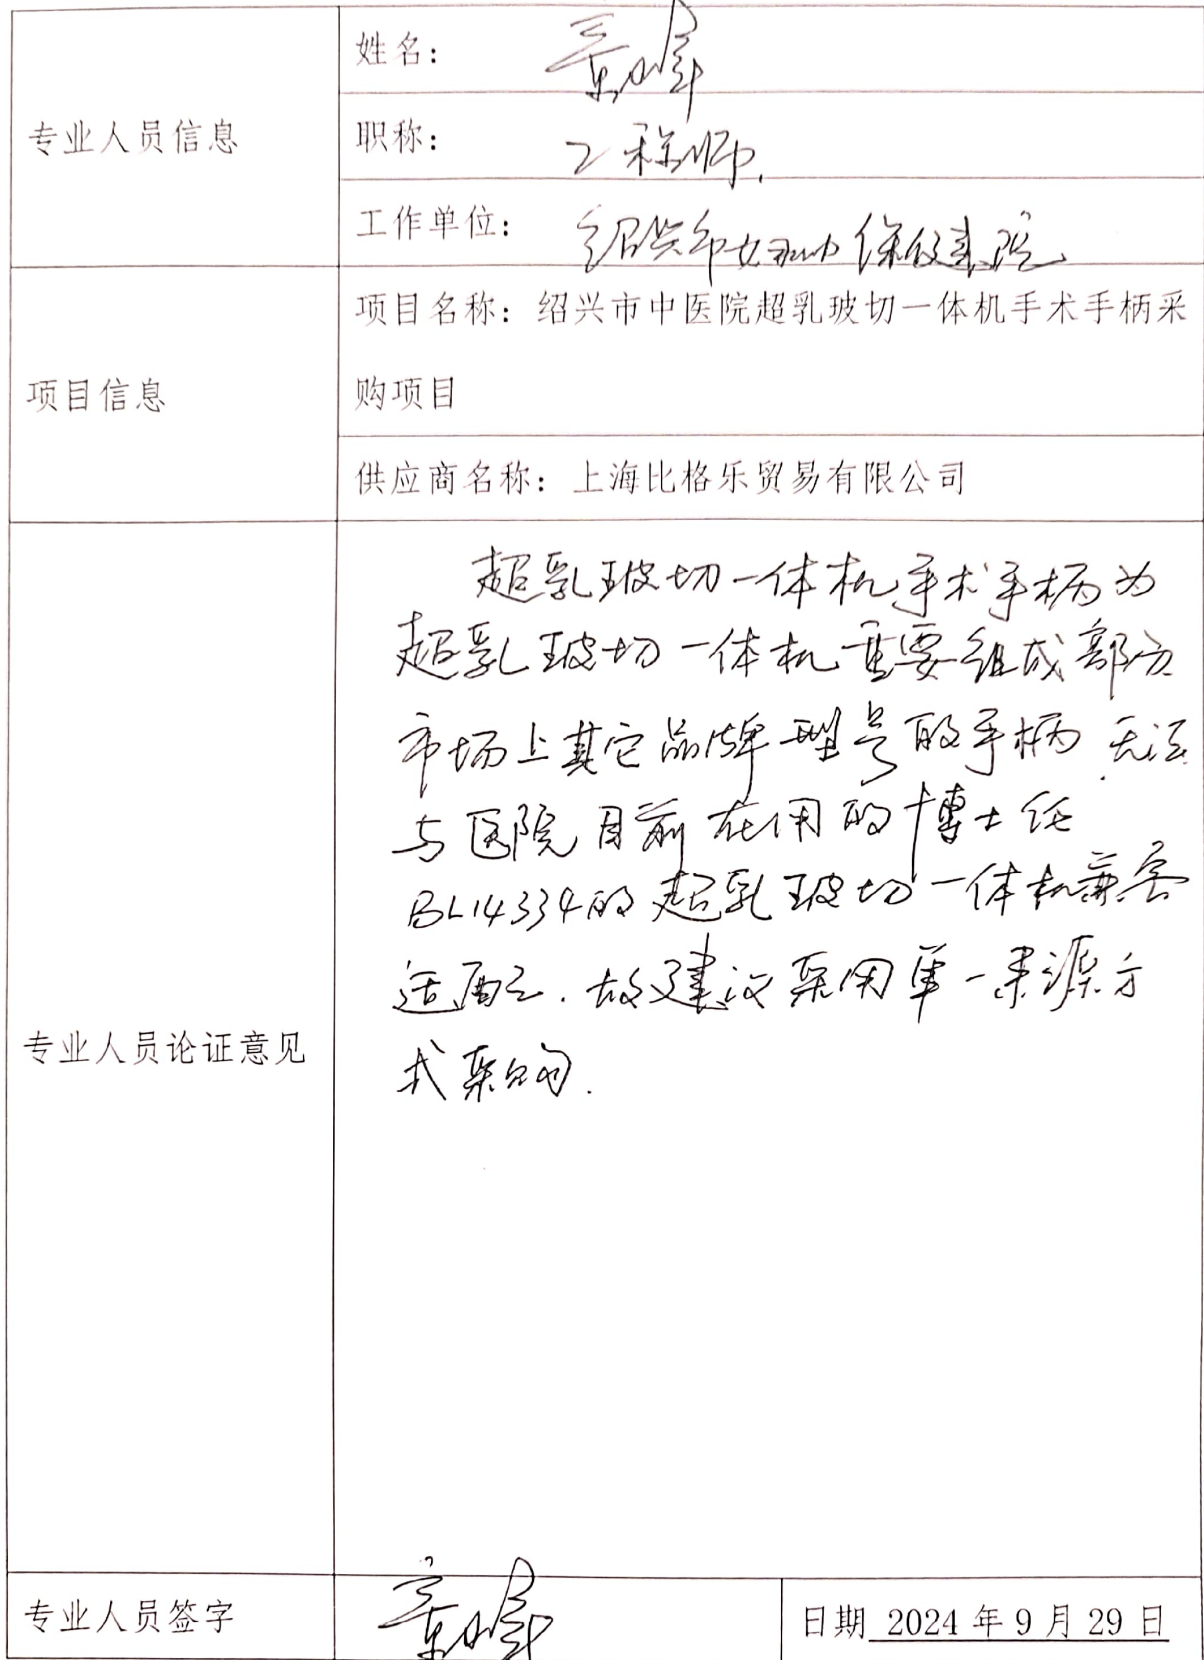 专业人员信息
姓名：
职称：工程师.
工作单位：绍兴市妇幼保健院
项目信息
项目名称：绍兴市中医院超乳玻切一体机手术手柄采
购项目
供应商名称：上海比格乐贸易有限公司
专业人员论证意见
超乳玻切一体机手术手柄为
超乳玻切一体机重要组成部分
市场上其它品牌型号的手柄无法
与医院目前在用的博士伦
BL14334的超乳玻切一体机兼容
适配，故建议采用单一来源方
式采购.
专业人员签字
日期 2024 年 9 月 29 日